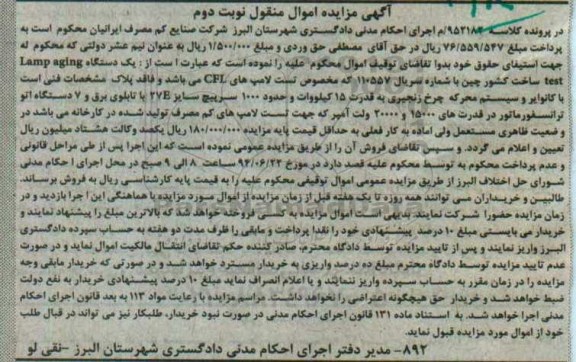 آگهی مزایده اموال منقول نوبت دوم
در پرونده کلاسه ۹۵۲۱۸۲/م اجرای احکام مدنی دادگستری شهرستان البرز شرکت صنایع کم مصرف ایرانیان محکوم است به
پرداخت مبلغ ۷۶/۵۵۹/۵۴۷ ریال در حق آقای مصطفی حق وردی و مبلغ ۱/۵۰۰/۰۰۰ ریال به عنوان نیم عشر دولتی که محکوم له
جهت استیفای حقوق خود بدوا تقاضای توقیف اموال محکوم علیه را نموده است که عبارت است از : یک دستگاه Lamp aging
test ساخت کشور چین با شماره سریال ۱۱۰۵۵۷ که مخصوص تست لامپ های CFL می باشد و فاقد پلاک مشخصات فنی است
با کانوایر و سیستم محرکه چرخ زنجیری به قدرت ۱۵ کیلووات و حدود ۱۰۰۰ سرپیچ سایز ۲۷E با تابلوی برق و ۷ دستگاه اتو
ترانسفورماتور در قدرت های ۱۵۰۰۰ و ۲۰۰۰۰ ولت آمپر که جهت تست لامپ های کم مصرف تولید شده در کارخانه می باشد در
وضعیت ظاهری مستعمل ولی آماده به کار فعلی به حداقل قیمت پایه مزایده ۱۸۰/۰۰۰/۰۰۰ ریال یکصد وکالت هشتاد میلیون ریال
تعیین و اعلام می گردد. و سپس تقاضای فروش آن را از طریق مزایده عمومی نموده است که این اجرا پس از طی مراحل قانونی
و عدم پرداخت محکوم به توسط محکوم علیه قصد دارد در مورخ ۹۴/۰۶/۲۲ ساعت ۸ الی ۹ صبح در محل اجرای احکام مدنی
شورای حل اختلاف البرز از طریق مزایده عمومی اموال توقیفی محکوم علیه را به قیمت پایه کارشناسی ریال به فروش برساند.
طالبین و خریداران می توانند همه روزه تا یک هفته قبل از زمان مزایده از اموال مورد مزایده با هماهنگی این اجرا بازدید و در
زمان مزایده حضورا شرکت نمایند. بدیهی است اموال مزایده به کسی فروخته خواهد شد که بالاترین مبلغ را پیشنهاد نمایند و
خریدار می بایستی مبلغ ۱۰ درصد پیشنهادی خود را نقدا پرداخت و مابقی را ظرف مدت دو هفته به حساب سپرده دادگستری
البرز واریز نمایند و پس از تایید مزایده توسط دادگاه محترم، صادر کننده حکم تقاضای انتقال مالکیت اموال نماید و در صورت
عدم تایید مزایده توسط دادگاه محترم مبلغ ده درصد واریزی به خریدار مسترد خواهد شد و در صورتی که خریدار مابقی وجه
مزایده را در زمان مقرر به حساب سپرده واریز ننمایند و یا اعلام انصراف نماید مبلغ ۱۰ درصد پیشنهادی خریدار به نفع دولت
ضبط خواهد شد و خریدار حق هیچگونه اعتراضی را نخواهد داشت. مراسم مزایده با رعایت مواد ۱۱۳ به بعد قانون اجرای احکام
مدنی اجرا خواهد شد. به استناد ماده ۱۳۱ قانون اجرای احکام مدنی در صورت نبود خریدار، طلبکار نیز می تواند در قبال طلب
خود از اموال مورد مزایده قبول نماید.
۸۹۲- مدیر دفتر اجرای احکام مدنی دادگستری شهرستان البرز -نقی لو